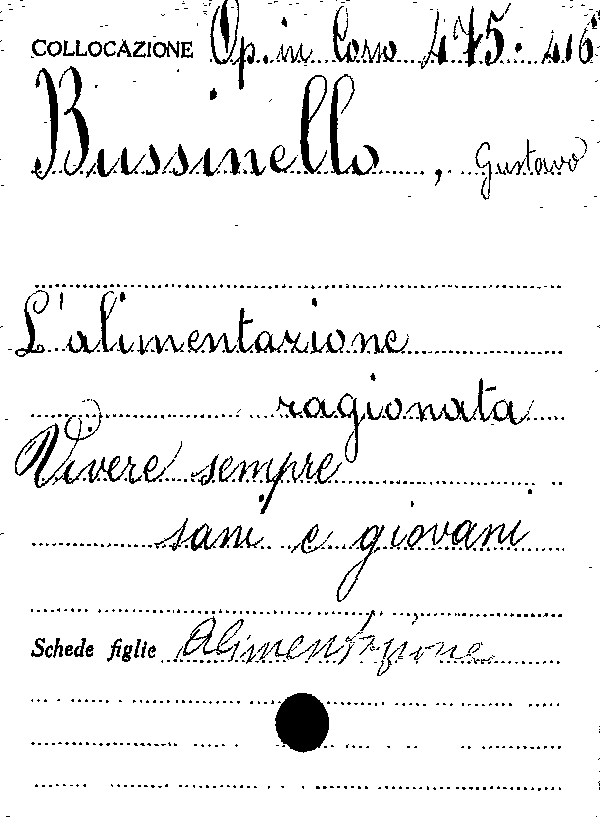 COLLOCAZIONE Op. in Corso 475. 416
Bussinello, Gustavo
L'alimentazione
ragionata
Vivere sempre
sani e giovani
Schede figlie Alimentazione